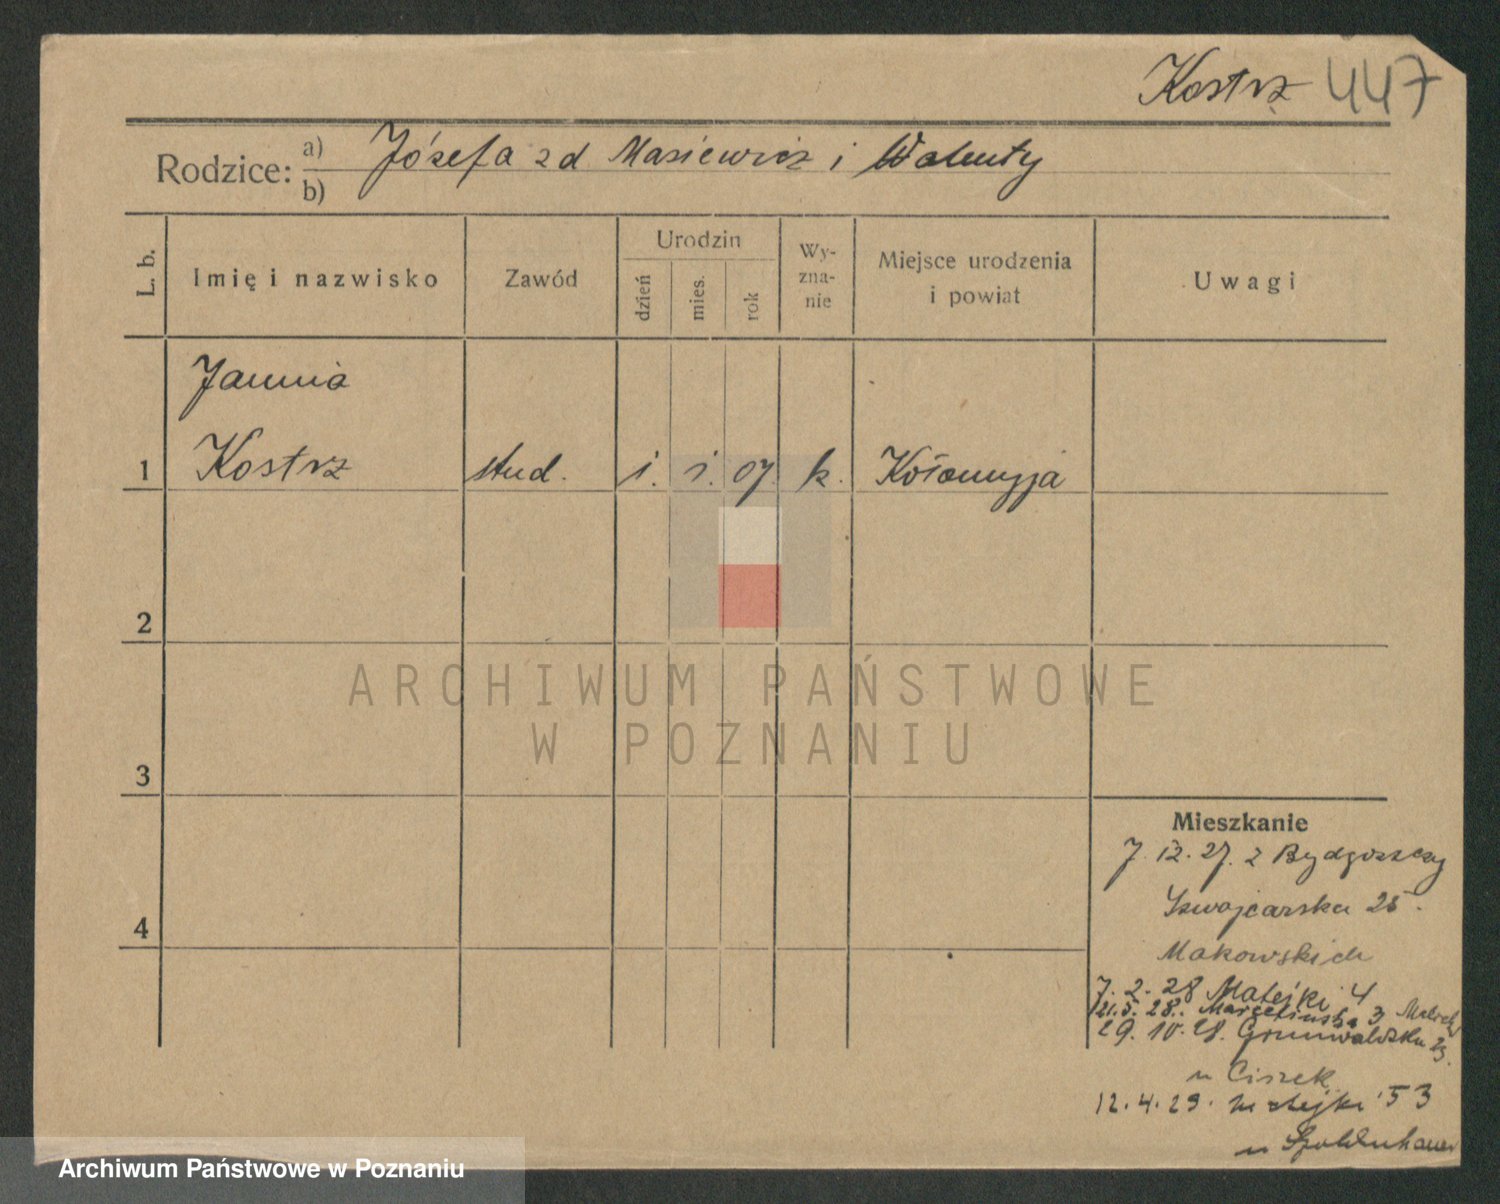 Kostrz 447
Rodzice: a) Józefa zd Masiewicz i Walenty
b)
L. b.
Imię i nazwisko
Zawód
Urodzin
dzień
mies.
rok
Wy-
zna-
nie
Miejsce urodzenia
i powiat
Uwagi
Janina
1 Kostrz stud. 1. 1. 07 k. Kołomyja
2
ARCHIWUM PAŃSTWOWE
W POZNANIU
3
Mieszkanie
7. 12. 27. z Bydgoszczy
Szwajcarska 25.
Makowskich
4
7. 2. 28 Matejki 4
21. 5. 28. Marcelińska 3
29. 10. 28. Grunwaldzka 23.
u Ciszek
12. 4. 29. Matejki 53
u
Archiwum Państwowe w Poznaniu